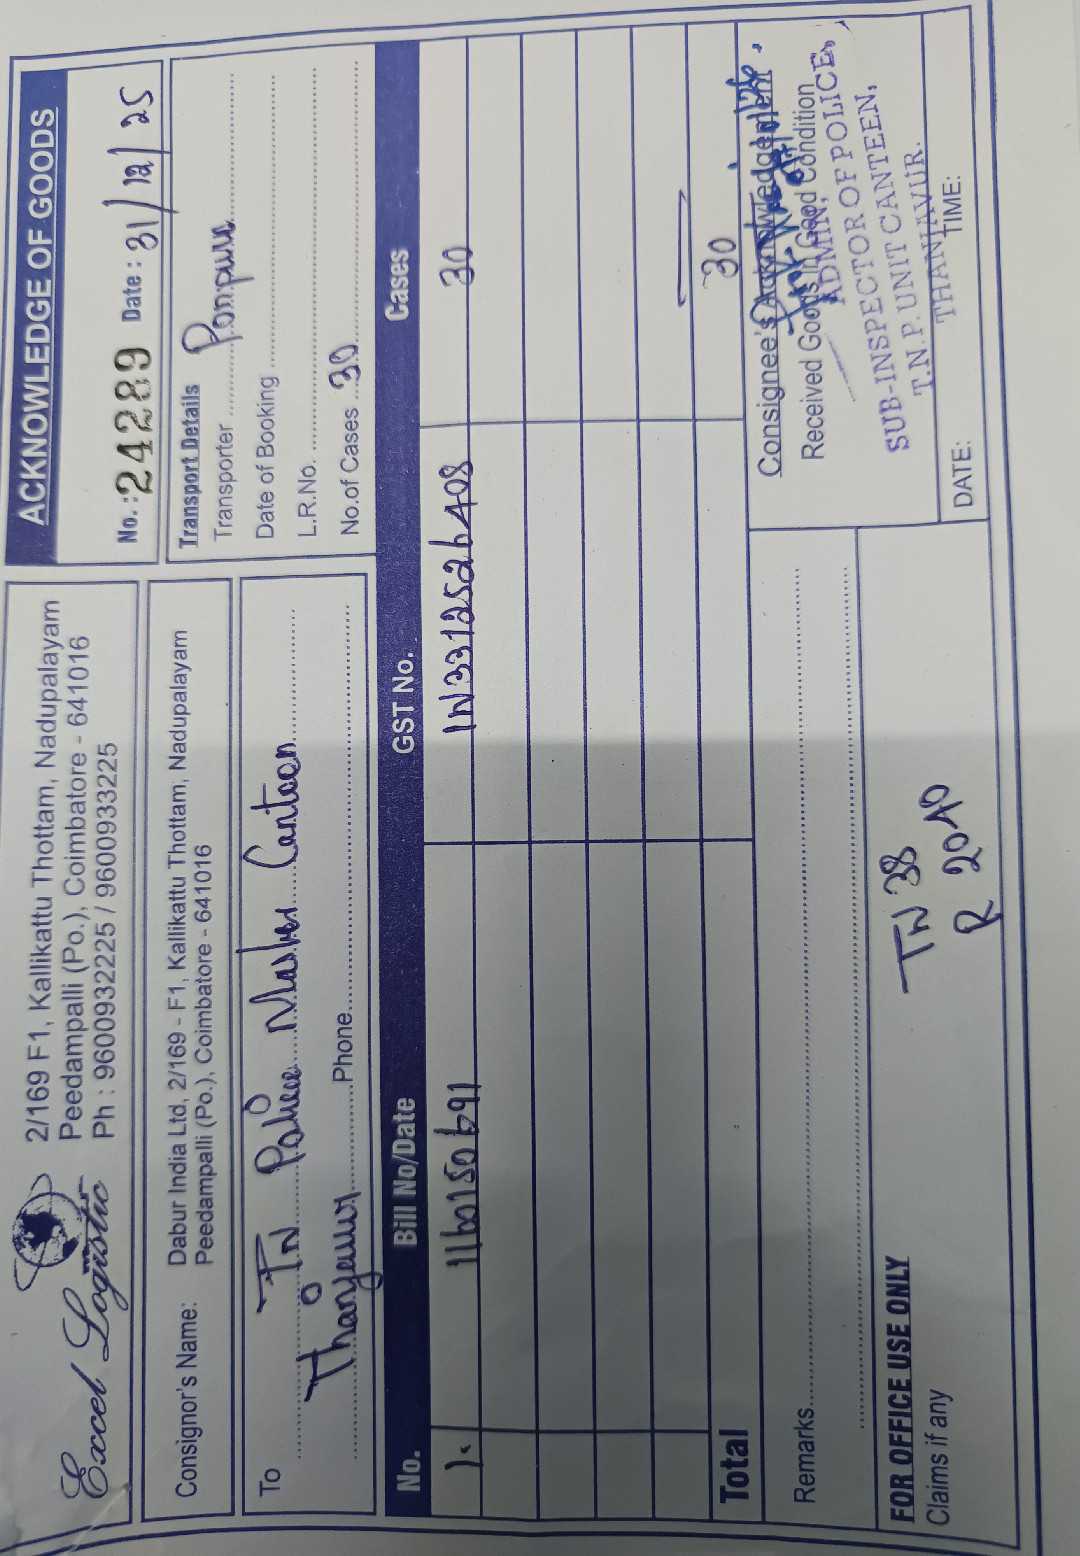 Excel Logistic
2/169 F1, Kallikattu Thottam, Nadupalayam
Peedampalli (Po.), Coimbatore - 641016
Ph : 9600932225 / 9600933225
ACKNOWLEDGE OF GOODS
No. : 24289 Date : 31/12/25
Consignor's Name: Dabur India Ltd, 2/169 - F1, Kallikattu Thottam, Nadupalayam
Peedampalli (Po.), Coimbatore - 641016
To TN Police Master Canteen
Thanjavur Phone
Transport Details
Transporter
Date of Booking
L.R.No.
No.of Cases 30
No. Bill No/Date GST No. Cases
1. 1160150691 IN3312526408 30
Total 30
Remarks
Consignee's Acknowledgement
Received Goods In Good Condition
ADMIN, OF POLICE,
SUB-INSPECTOR OF POLICE,
T.N.P. UNIT CANTEEN,
THANJAVUR.
DATE: TIME:
FOR OFFICE USE ONLY
Claims if any
TN 38
R 2040